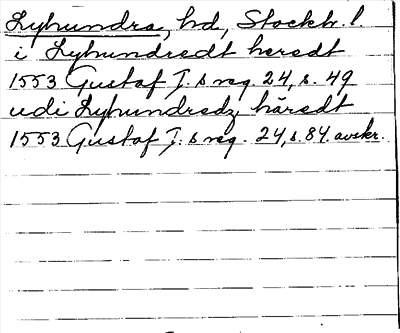 Lyhundra, hd, Stockh. l
i Lyhundredt heredt
1553 Gustaf I:s reg. 24, s. 49
udi Lyhundredz häredt
1553 Gustaf I:s reg. 24, s. 84. avskr.